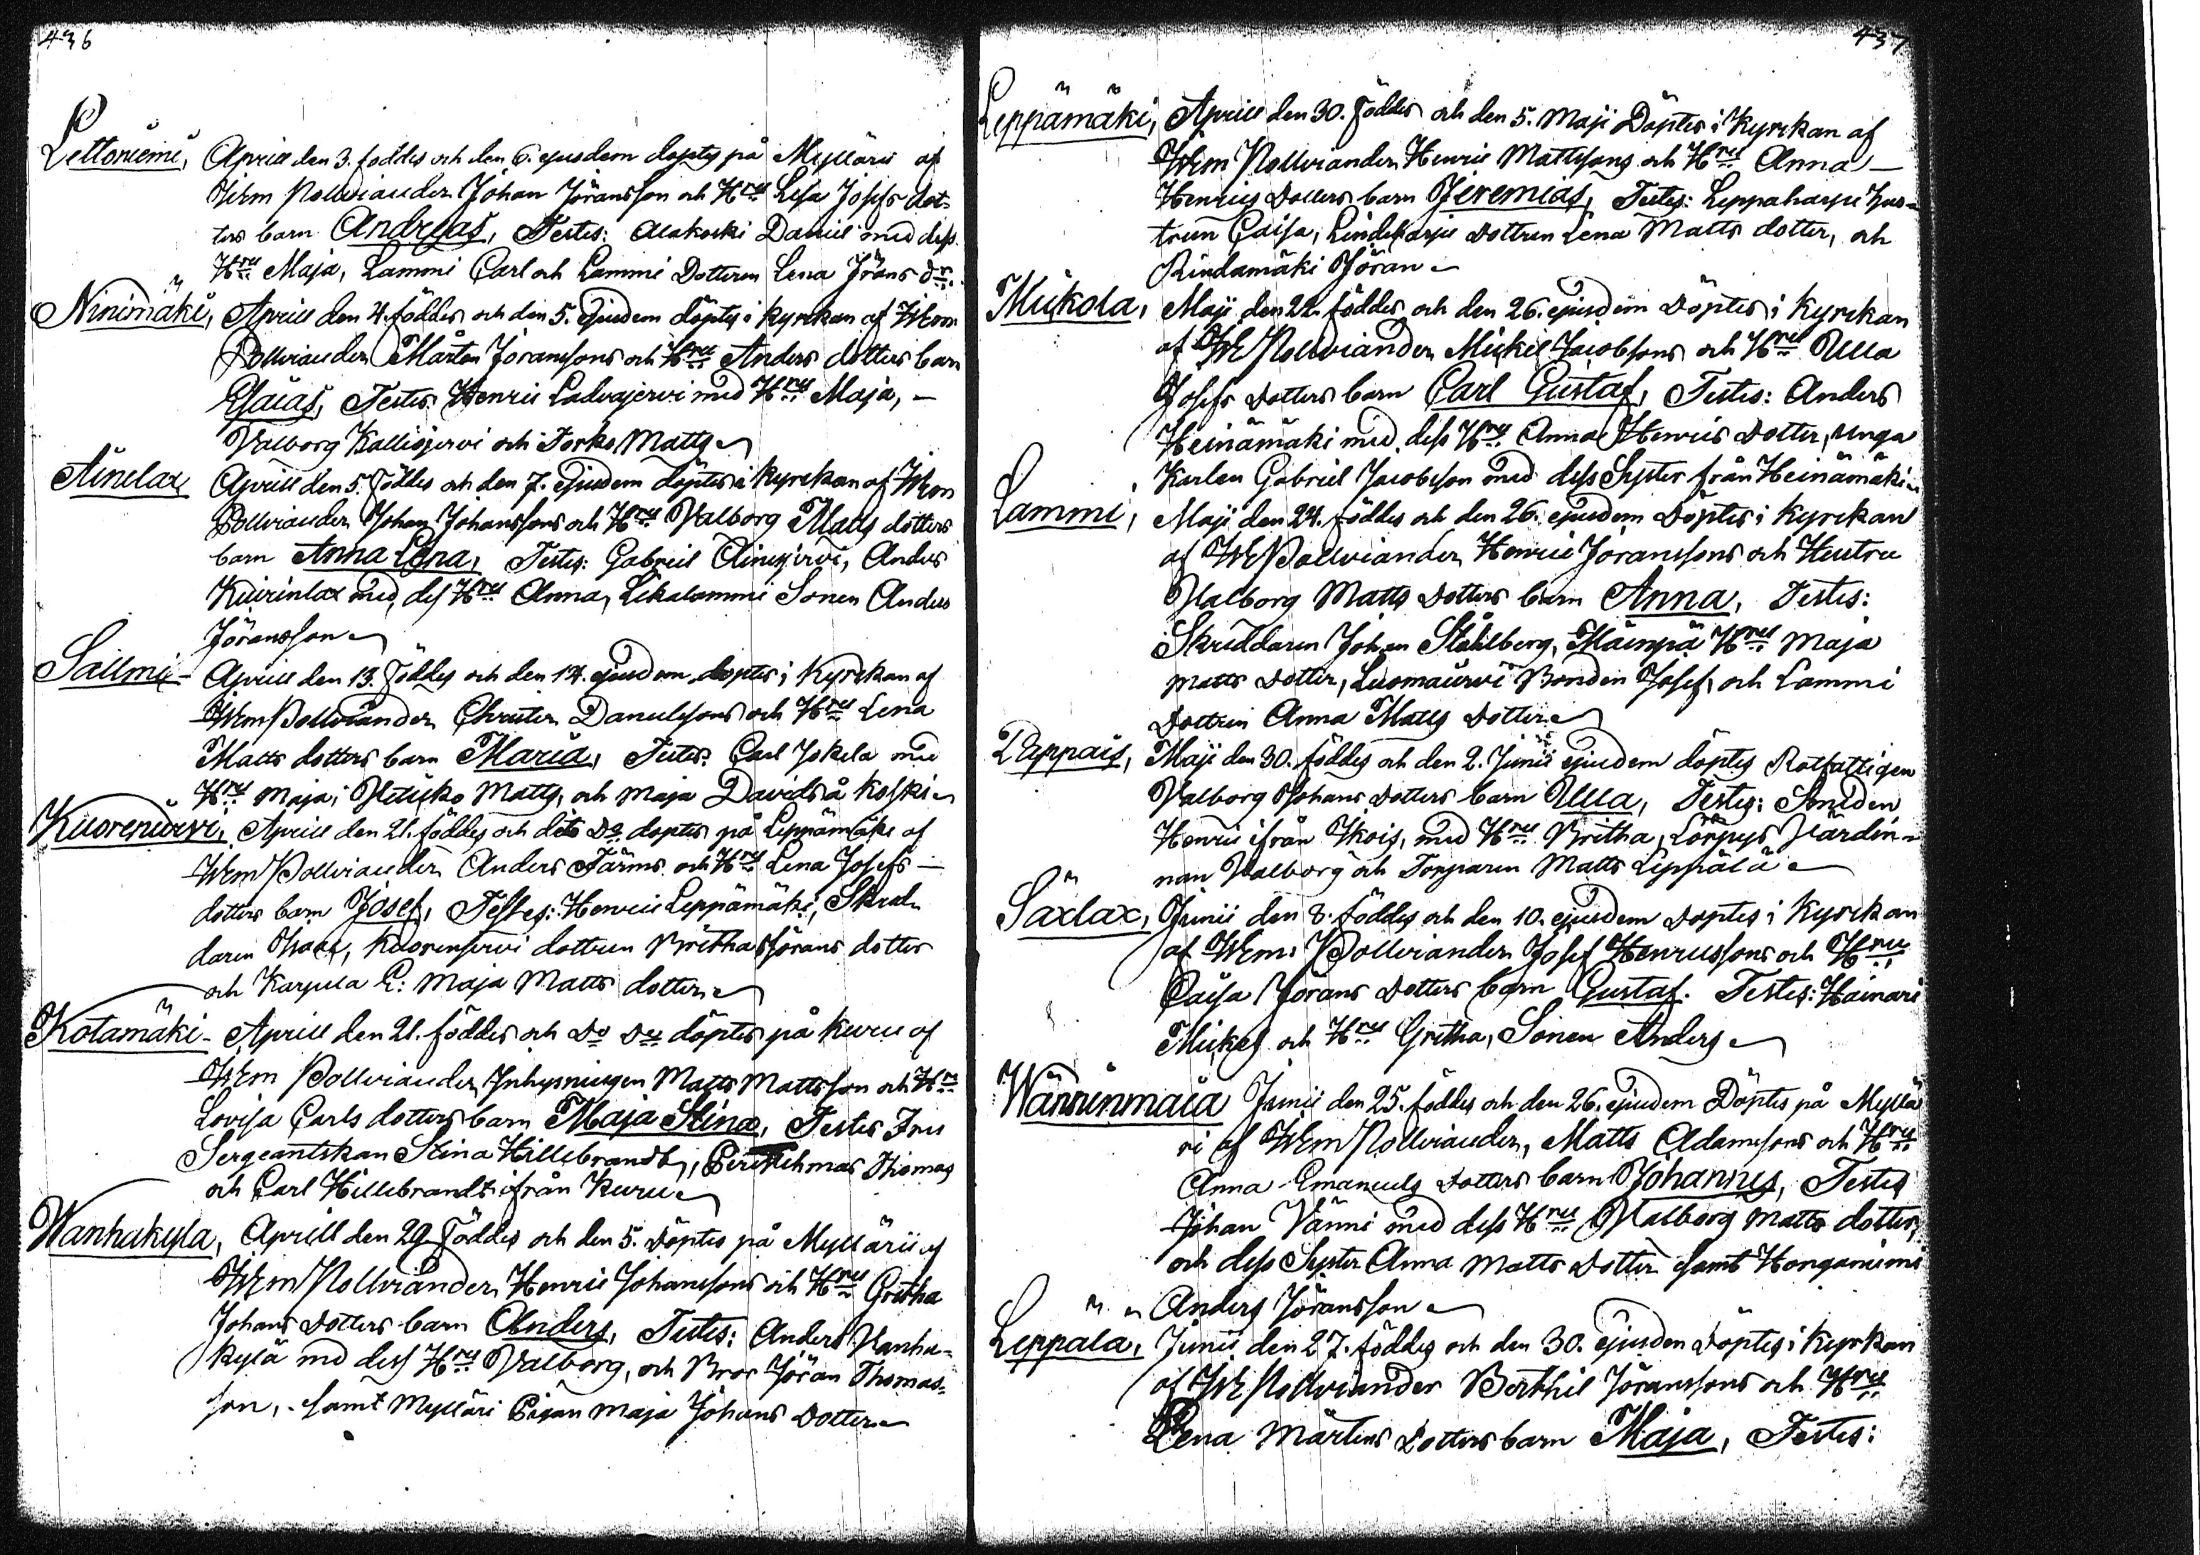 436
Lettoniemi, Aprill den 3. föddes och den 6. ejusdem döptes på Myllärii af
WEm Pollviander Johan Jöransson och Hru Lisa Josefs dot-
ters barn Andreas, Testes: Alakoski Daniel med dess
Hru Maja, Lammi Carl och Lammi Dotteren Lena Jörans dr.
Ninimäki, Aprill den 4. föddes och den 5. Ejusdem döptes i Kyrckan af WEm
Pollviander Mårten Jöranssons och Hru Anders dotters barn
Esaias, Testes Henric Ladvajervi med Hru Maja, –
Valborg Kalliojervi och Torko Matts
Ainelax Aprill den 5. Föddes och den 7. Ejusdem döptes i Kyrckan af WEm
Pollviander Johan Johanssons och Hru Valborg Matts dotters
barn Anna Lena, Testes: Gabriel Ainejervi, Anders
Kivirinlax med des Hru Anna, Likalammi Sonen Anders
Jöransson
Sallmi – Aprill den 13. Föddes och den 14. ejusdem döptes i Kyrckan af
WEm Pollviander Christer Danielssons och Hru Lena
Matts dotters barn Maria, Testes: Carl Jokela med
Hru Maja, Matts, och Maja Davids å Koski
Kuorenjervi, Aprill den 21. föddes och dito Do döptes på Leppämäki af
WEm Pollviander Anders Färms och Hru Lena Josefs –
dotters barn Josef, Testes: Henric Leppämäki, Skräd-
daren Isaac, Kuorenjervi dottren Britha Jörans dotter
och Karpula E: Maja Matts dotter
Kotamäki – Aprill den 21. föddes och Do Do döptes på Kuru af
WEm Pollviander Inhysningen Matts Mattsson och Hru
Lovisa Carls dotters barn Maja Stina, Testes Fru
Sergeantskan Stina Hillebrandt, Thomas
och Carl Hillebrandt ifrån Kuru
Wanhakyla, Aprill den 29 Föddes och den 5. Döptes på Myllärii af
WEm Pollviander Henric Johanssons och Hru Gretha
Johans Dotters barn Anders, Testes: Anders Vanha-
kylä med dess Hru Valborg, och Bror Jöran Thomas-
son, samt Mylläri Pigan Maja Johans Dotter
437
Leppämäki, Aprill den 30. Föddes och den 5. Maji Döptes i Kyrckan af
WEm Pollviander Henric Mattssons och Hru Anna –
Henrics Dotters barn Jeremias, Testes: Leppaharju Hus-
trun Caisa, Lindeharju dottren Lena Matts dotter, och
Rindamäki Jöran
Mickola, Maji den 22. föddes och den 26. ejusdem Döptes i Kyrckan
af WE Pollviander Mickel Jacobsons och Hru Ulla
Josefs Dotters barn Carl Gustaf, Testes: Anders
Heinämäki med dess Hru Anna Henrics Dotter, Unga
Karlen Gabriel Jacobsson med dess Syster från Heinämäki
Lammi, Maji den 24. föddes och den 26. ejusdem Döptes i Kyrckan
af WE Pollviander Henric Jöranssons och Hustru
Valborg Matts Dotters barn Anna, Testes:
Skräddaren Johan Ståhlberg, Mäinpä Hru Maja
Matts Dotter, Luomajervi Bonden Josef, och Lammi
Dottren Anna Matts Dotter
Pappais, Maji den 30. föddes och den 2. Junii ejusdem döptes Rotfattigen
Valborg Johans Dotters barn Ulla, Testes: Smeden
Henric ifrån Ikois, med Hru Britha, Lörpys Värdin-
nan Valborg och Torparen Matts Leppälä
Säxlax, Junii den 8. föddes och den 10. ejusdem Döptes i Kyrckan
af WEm: Pollviander Josef Henricssons och Hru
Caisa Jörans Dotters barn Gustaf. Testes: Hainari
Mickel och Hru Gretha, Sonen Anders
Wännenmaia Junii den 25. föddes och den 26. ejusdem Döptes på Myllä
ri af WEm Pollviander, Matts Adamssons och Hru
Anna Emanuels Dotters barn Johannes, Testes
Johan Vänni med dess Hru Valborg Matts dotter,
och dess Syster Anna Matts Dotter samt Honganiemi
Anders Jöransson
Leppälä, Junii den 27. föddes och den 30. ejusden Döptes i Kyrkan
af WE Pollviander Berthil Jöranssons och Hru
Lena Mårtens Dotters barn Maja, Testes: